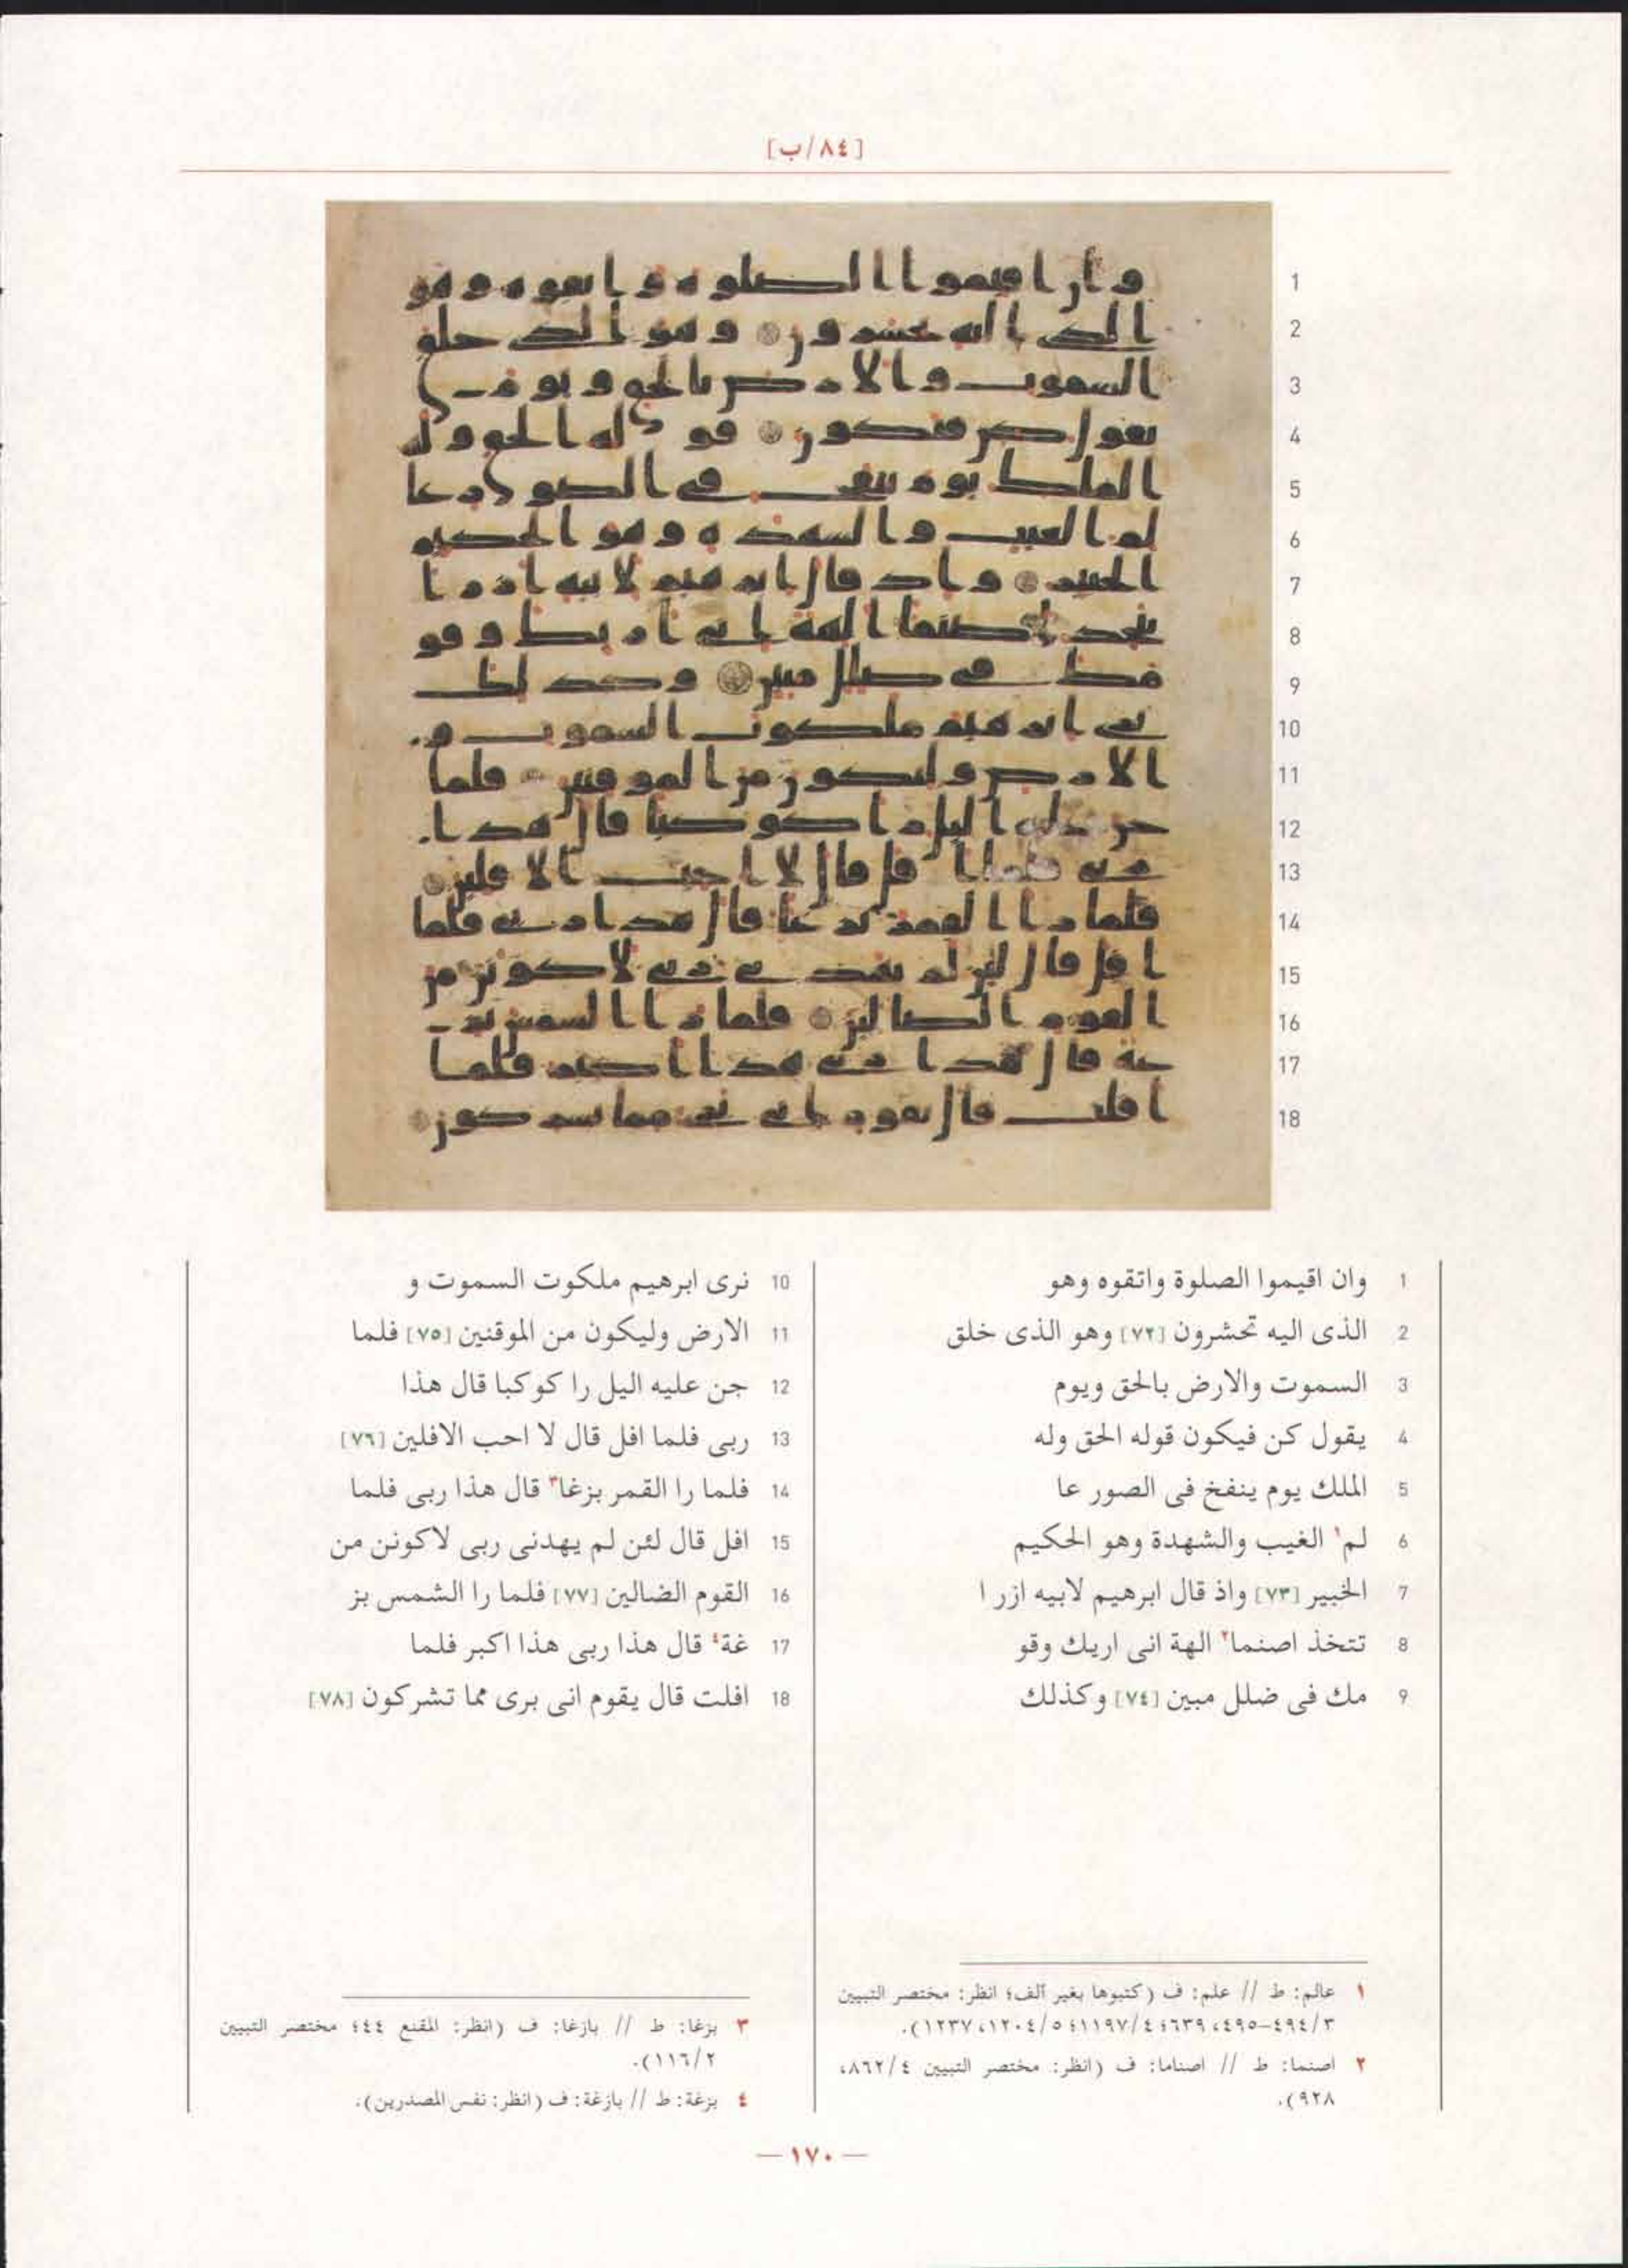 [٨٤/ب]
1 وان اقيموا الصلوة واتقوه وهو
2 الذى اليه تحشرون [٧٢] وهو الذى خلق
3 السموت والارض بالحق ويوم
4 يقول كن فيكون قوله الحق وله
5 الملك يوم ينفخ فى الصور عا
6 لم١ الغيب والشهدة وهو الحكيم
7 الخبير [٧٣] واذ قال ابرهيم لابيه ازر ا
8 تتخذ اصنما٢ الهة انى اريك وقو
9 مك فى ضلل مبين [٧٤] وكذلك
10 نرى ابرهيم ملكوت السموت و
11 الارض وليكون من الموقنين [٧٥] فلما
12 جن عليه اليل را كوكبا قال هذا
13 ربى فلما افل قال لا احب الافلين [٧٦]
14 فلما را القمر بزغا٣ قال هذا ربى فلما
15 افل قال لئن لم يهدنى ربى لاكونن من
16 القوم الضالين [٧٧] فلما را الشمس بز
17 غة٤ قال هذا ربى هذا اكبر فلما
18 افلت قال يقوم انى برى مما تشركون [٧٨]
١ عالم: ط // علم: ف (كتبوها بغير ألف؛ انظر: مختصر التبيين
٣/٤٩٤-٤٩٥، ٦٣٩؛ ٤/١١٩٧؛ ٥/١٢٠٤، ١٢٣٧).
٢ اصنما: ط // اصناما: ف (انظر: مختصر التبيين ٤/٨٦٢،
٩٢٨).
٣ بزغا: ط // بازغا: ف (انظر: المقنع ٤٤؛ مختصر التبيين
٢/١١٦).
٤ بزغة: ط // بازغة: ف (انظر: نفس المصدرين).
— ١٧٠ —